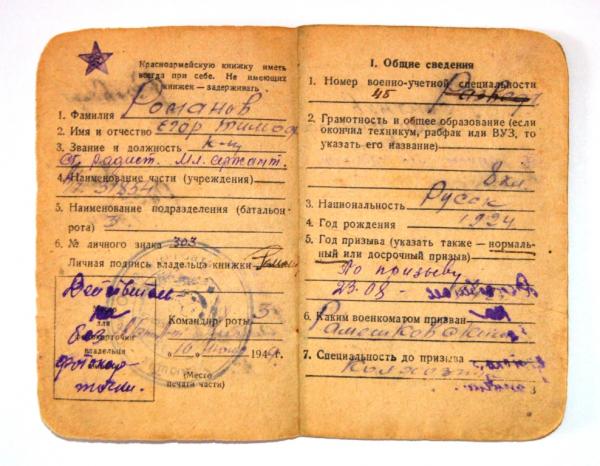 Красноармейскую книжку иметь
всегда при себе. Не имеющих
книжек — задерживать
1. Фамилия Романов
2. Имя и отчество Егор Тимоф
3. Звание и должность
Ст. радист. Мл. сержант.
4. Наименование части (учреждения)
5. Наименование подразделения (батальон
рота) 3
6. № личного знака 303
Личная подпись владельца книжки
Действител
на
без
для
фотокарточки
владельца
фотокар
точки.
Командир роты
„ 16 " 194 г.
(Место
печати части)
I. Общие сведения
1. Номер военно-учетной специальности
45
2. Грамотность и общее образование (если
окончил техникум, рабфак или ВУЗ, то
указать его название)
8 кл.
3. Национальность Русск
4. Год рождения 1924
5. Год призыва (указать также — нормаль-
ный или досрочный призыв)
По призыву
23.08
6. Каким военкоматом призван
Рамешковским
7. Специальность до призыва
Колхозник
3